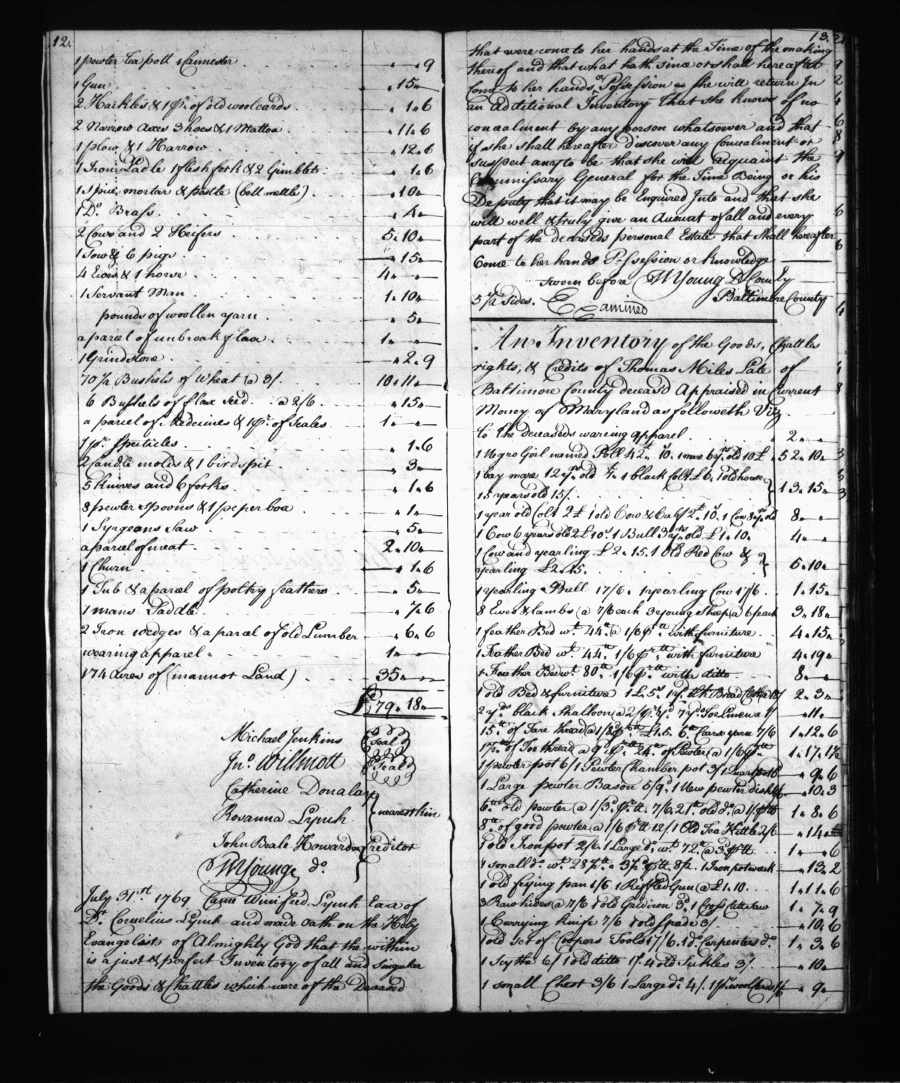 12.
1 pewter tea pott 1 Cannester . . 9
1 Gun . 15 .
2 Harkles & 1 pr. of old woolcards . 1 . 6
2 Narrow Axes 3 hoes & 1 Mattox . 11 . 6
1 plow & 1 Harrow . 12 . 6
1 Iron Ladle 1 flesh fork & 2 Gimblets . 1 . 6
1 Spice mortar & pestle (bell mettle) . 10 .
1 Do. Brass . 4 .
2 Cows and 2 Heifers 5 . 10 .
1 Sow & 6 pigs . 15 .
4 Ewes & 1 horse 4 . .
1 Servant Man 1 . 10 .
pounds of woollen yarn . 5 .
a parcel of unbroak flax 1 . .
1 Grindstone . 2 . 9
70 1/2 Bushels of Wheat @ 3/. 10 . 11 .
6 Bushels of flax seed . @ 2/6 . 15 .
a parcel of Medecines & 1 pr. of Scales 1 . .
1 pr. Specticles . 1 . 6
2 Candle molds & 1 bird spit . 3 .
5 knives and 6 forks . 1 . 6
8 pewter spoons & 1 peper box . 1 .
1 Syrgeons Saw . 5 .
a parcel of meat 2 . 10 .
1 Churn . 1 . 6
1 Tub & a parcel of poltry feathers . 5 .
1 mans Saddle . 7 . 6
2 Iron wedges & a parcel of old Lumber . 6 . 6
wearing apparel 1 . .
174 acres of (mannor Land) 35 . .
£ 79 . 18 .
Michael Jenkins (Seal)
Jno. Willmott (Seal)
Catherine Donalan
Rosanna Lynch } nearest kin
John Beale Howard } Creditor
WYoung do.
July 31st 1769 Came Winifred Lynch Exrx of
Dr. Cornelius Lynch and made oath on the Holy
Evangelists of Almighty God that the within
is a just & perfect Inventory of all and Singular
the Goods & Chattles which were of the Deceased
13.
that were come to her hands at the Time of the making
thereof and that what hath since or shall hereafter
Come to her hands or Possession she will return In
an additional Inventory That she knows of no
concealment by any person whatsoever and that
if she shall hereafter discover any Concealment or
suspect any to be that she will acquaint the
Commissary General for the Time Being or his
Deputy that it may be Enquired Into and that she
will well & truly give an Account of all and every
part of the deceaseds personal Estate that shall hereafter
Come to her hands Possession or knowledge
Sworn before WYoung D Comry
5 1/2 Sides. Examined Baltimore County
An Inventory of the Goods, Chattles
rights, & Credits of Thomas Miles Late of
Baltimore County deceasd Appraised in Current
Money of Maryland as followeth Viz
To the deceaseds waring apparel . 2 . .
1 Negro Girl named Poll 42£. 10. 1 mare 6 yrs. old 10£ . 52 . 10 .
1 bay mare 12 yrs. old 1 black Colt £6, 1 old horse }
15 years old 15/. } 13 . 15 .
1 year old Colt 2£ 1 old Cow & Calf 2£. 10s. 1 Cow 8 yrs. old 8 . .
1 Cow 6 years old 2£ 10s. 1 Bull 3 yrs. old £1. 10. 4 . .
1 Cow and yearling £2. 15. 1 Old Red Cow & }
yearling £2. 15. } 5 . 10 .
1 yearling Bull 17/6. 1 yearling Cow 17/6. 1 . 15 .
8 Ewes & lambs @ 7/6 each 3 young Sheep @ 6 each 3 . 18 .
1 feather Bed wt. 44lb. @ 1/6 with furniture 4 . 15 .
1 Feather Bed wt. 44lb. 1/6 with furniture 4 . 19 .
1 Feather Bed wt. 80lb. 1/6 with ditto 8 . .
1 old Bed & furniture 1£. 5s. 2 . 3 .
2 yds. black Shalloon @ 2/6 . 11 .
1 . 12 . 6
1 . 17 . 1 1/2
1 pewter pot 6/ 1 Pewter Chamber pot 3/ . 9 . 6
1 Large pewter Bason 5/9. 1 New pewter dish . 10 . 3
6lb. old pewter @ 1/3 7/6. 21lb. old do. @ 1/ 1 . 8 . 6
8lb. of good pewter @ 1/6 12/ 1 Old Tea Kittle 2/6 . 14 .
1 old Iron pot 2/6 1 Large do. wt. 72lb. @ 3d 1 . . 6
1 small do. wt. 28 . 13 . 2
1 old frying pan 1/6 1 Riffled Gun @ £1. 10. 1 . 11 . 6
3 Raw hides @ 7/6 1 Old Gridiron 3d. 1 Cross cut saw 1 . 7 . 9
1 Currying knife 7/6 1 old spade 3/ . 10 . 6
1 old Set of Coopers Tools 17/6. 1 do. Carpenters do. 1 . 3 . 6
1 Scythe 6/ 1 old ditto 1/. 4 old Sickles 3/. . 10 .
1 small Chest 3/6 1 Large do. 4/. 1 pr. wool Cards 1/6 . 9 .